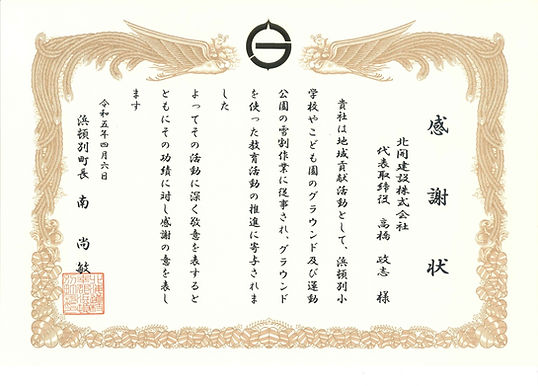 感謝状
北開建設株式会社
代表取締役 高橋 政志 様
貴社は地域貢献活動として、浜頓別小
学校やこども園のグラウンド及び運動
公園の雪割作業に従事され、グラウンド
を使った教育活動の推進に寄与されま
した
よってその活動に深く敬意を表すると
ともにその功績に対し感謝の意を表し
ます
令和五年四月六日
浜頓別町長 南 尚敏